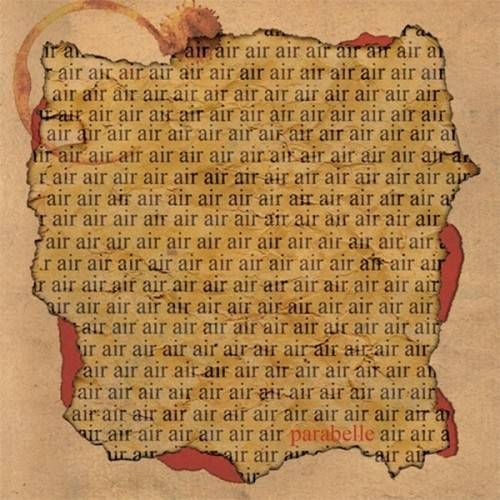 ir a air air air air air air air air a
r air air air air air air air air air air air air air
air air air air air air air air air air air air air ai
r air air air air air air air air air air air air air a
air air air air air air air air air air air air air air
ir air air air air air air air air air air air air air air
r air air air air air air air air air air air air air air
ir air air air air air air air air air air air air air
r air air air air air air air air air air air air air
air air air air air air air air air air air air air ai
r air air air air air air air air air air air air air
air air air air air air air air air air air air air
air air air air air air air air air air air air air
air air air air air air air air air air air air
air air air air air air air air air air air air
air air air air air air air air air air air air
air air air air air air air air air air air air
air air air air air air air air air air air air a
air air air air air air air parabelle air air a
air air air air air air air air air air